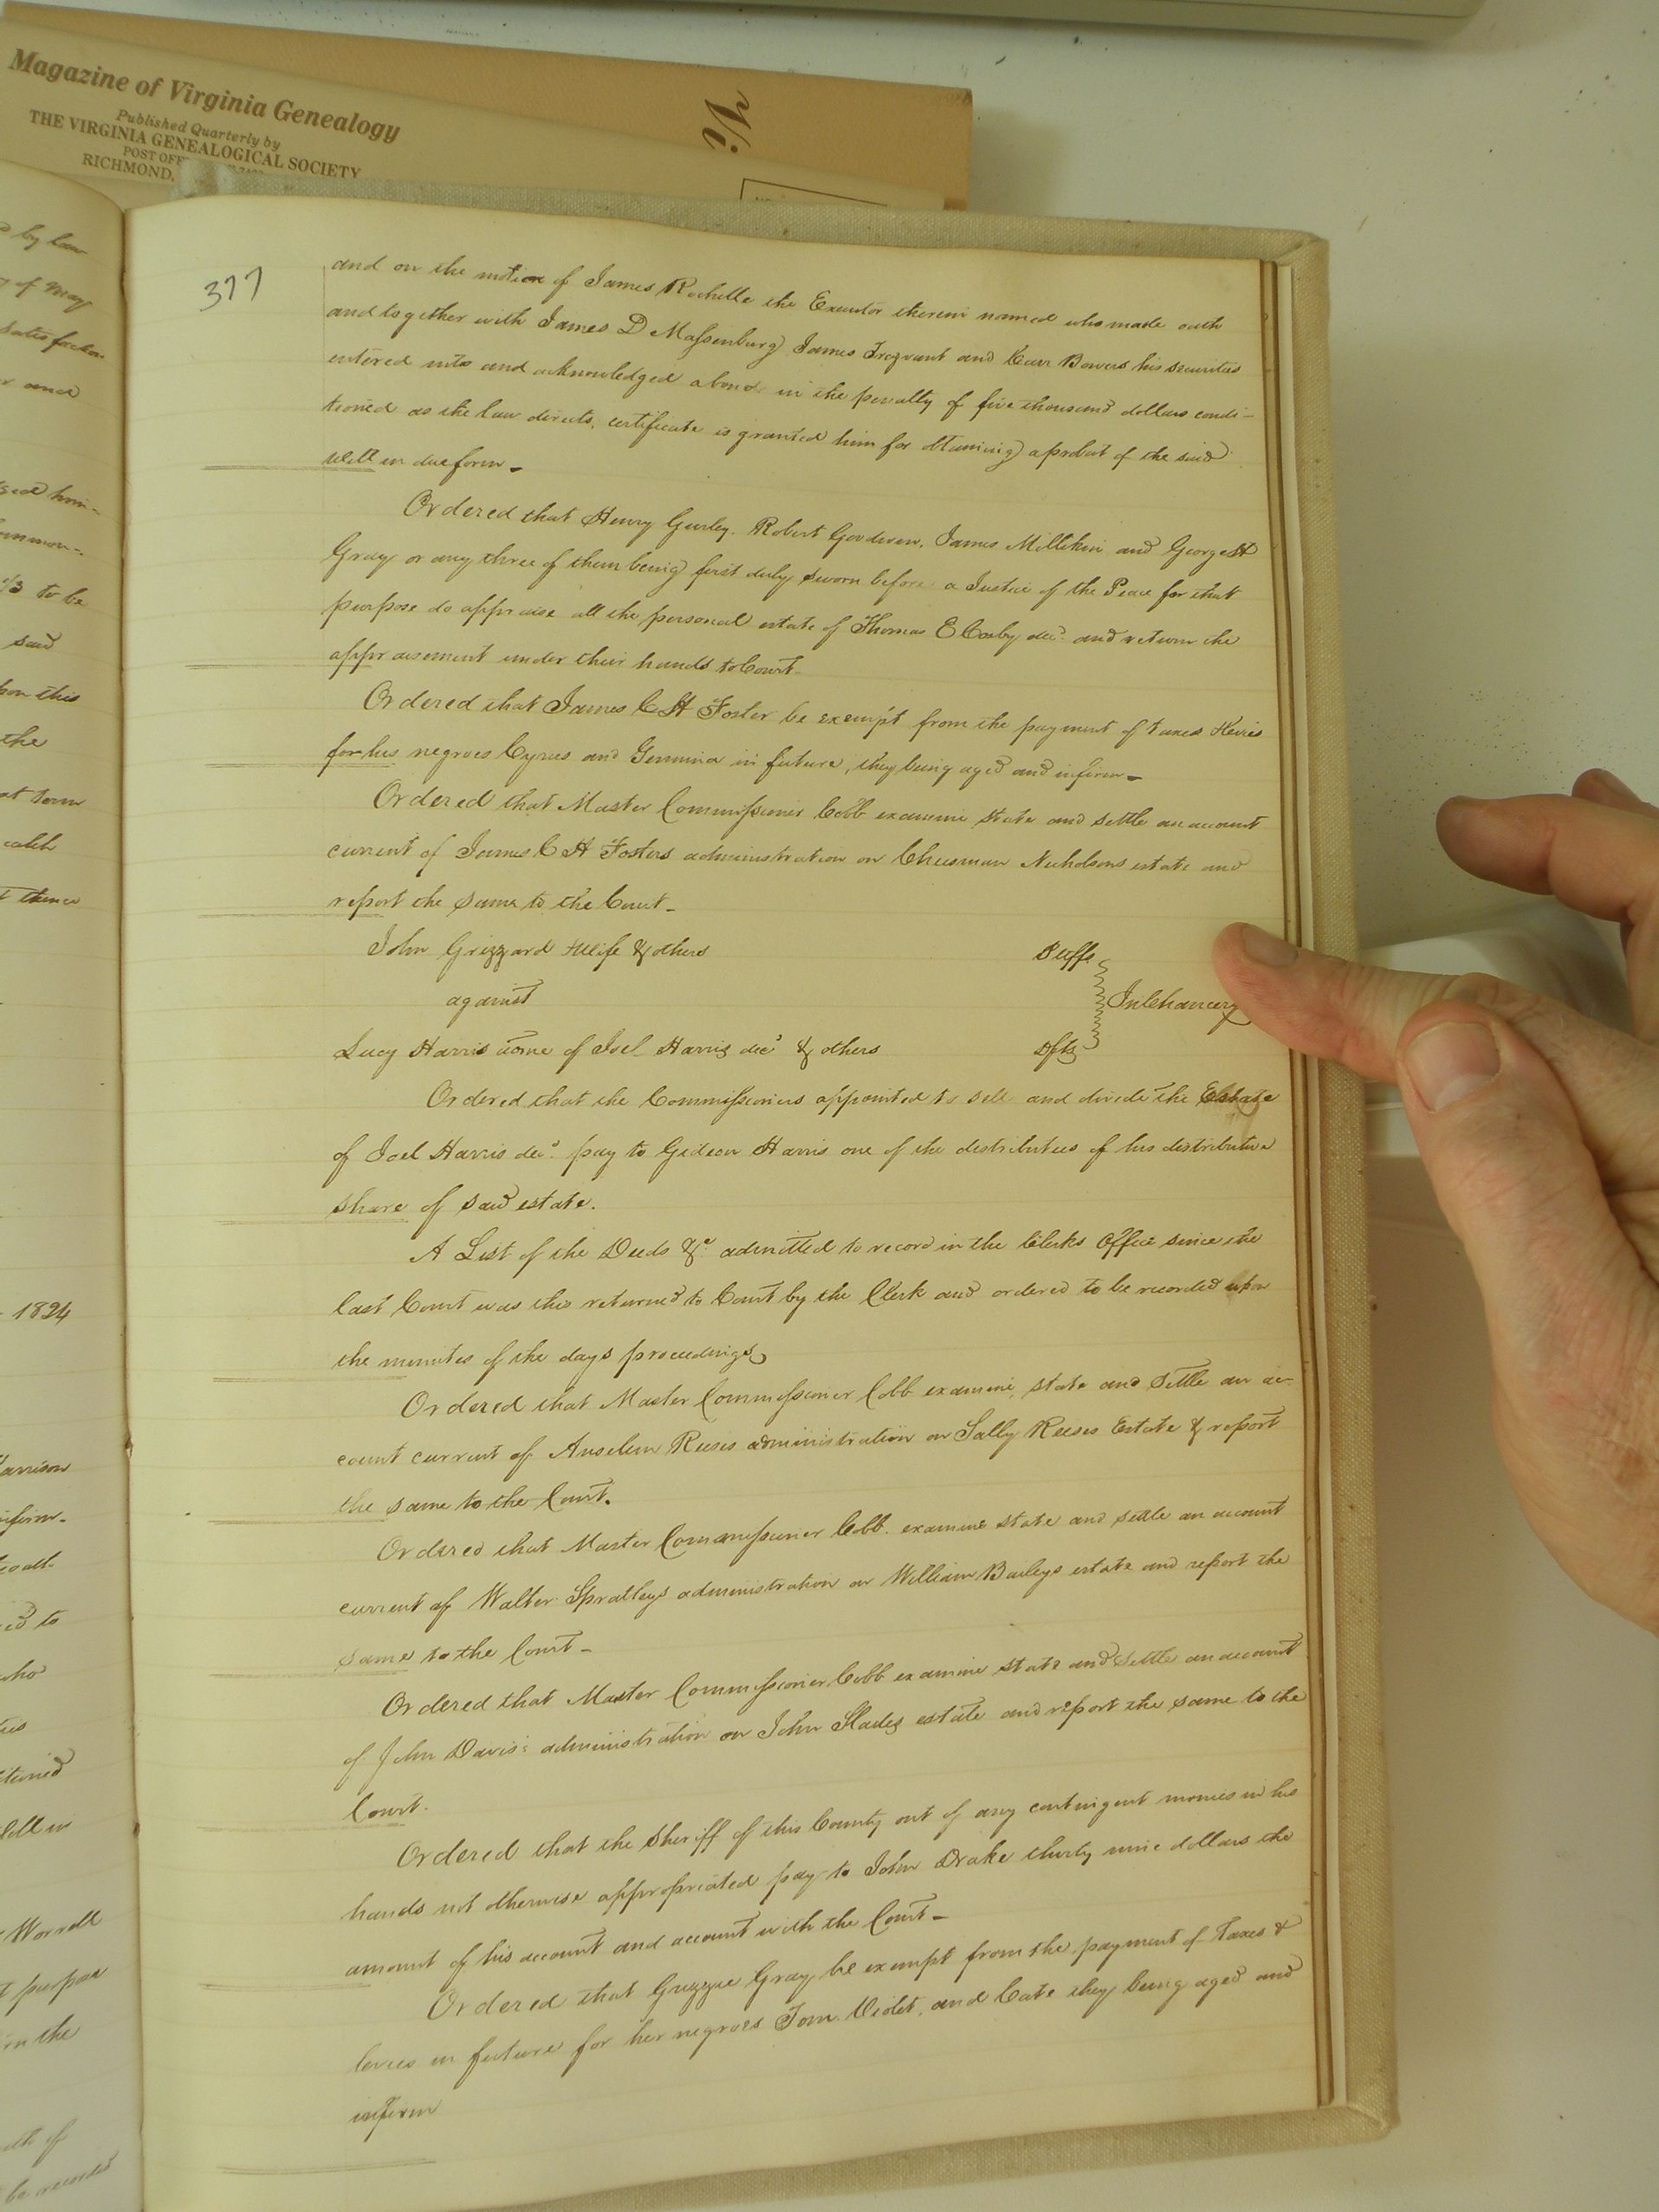 Magazine of Virginia Genealogy
Published Quarterly by
THE VIRGINIA GENEALOGICAL SOCIETY
POST OFF
RICHMOND,
Vi
377
and on the motion of James Rochelle the Executor therein named who made oath
and together with James D Massenburg James Trezvant and Carr Bowers his securities
entered into and acknowledged a bond in the penalty of five thousand dollars condi-
tioned as the law directs, certificate is granted him for obtaining a probat of the said
will in due form -
Ordered that Henry Gurley. Robert Goodwin, James Millikin and George H
Gray or any three of them being first duly sworn before a Justice of the Peace for that
purpose do appraise all the personal estate of Thomas E Cosby decd. and return the
appraisement under their hands to Court
Ordered that James C H Foster be exempt from the payment of taxes & levies
for his negroes Cyrus and Gemima in future, they being aged and infirm -
Ordered that Master Commissioner Cobb examine state and settle an account
current of James C H Fosters administration on Cheesman Nicholsons estate and
report the same to the Court -
John Grizzard & wife & others Pltffs
against In Chancery
Lucy Harris admx of Joel Harris decd & others Dfts
Ordered that the Commissioners appointed to sell and divide the Estate
of Joel Harris decd. pay to Gideon Harris one of the distributees of his distributive
share of said estate.
A List of the Deeds &c. admitted to record in the Clerks Office since the
last Court was this returned to Court by the Clerk and ordered to be recorded upon
the minutes of the days proceedings
Ordered that Master Commissioner Cobb examine, state and settle an ac-
count current of Anselm Reeses administration on Sally Reeses Estate & report
the same to the Court.
Ordered that Master Commissioner Cobb. examine state and settle an account
current of Walter Spratleys administration on William Baileys estate and report the
same to the Court -
Ordered that Master Commissioner Cobb examine state and settle an account
of John Davis's administration on John Slades estate and report the same to the
Court.
Ordered that the Sheriff of this County out of any contingent monies in his
hands not otherwise appropriated pay to John Drake thirty nine dollars the
amount of his account and account with the Court -
Ordered that Grizzie Gray be exempt from the payment of Taxes &
levies in future for her negroes Tom. Violet, and Cate they being aged and
infirm
by law
of May
and
1/3 to be
said
upon this
the
1824
to
who
Worrell
in the
of